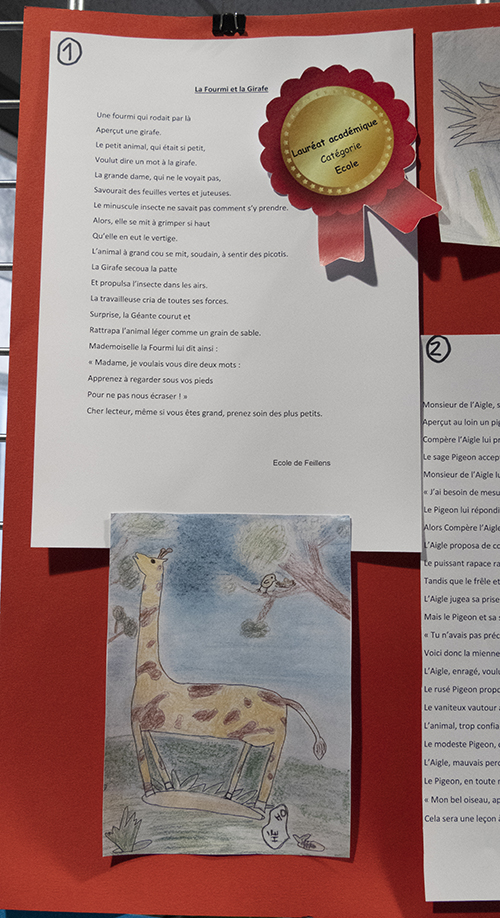 1
La Fourmi et la Girafe
Une fourmi qui rodait par là
Aperçut une girafe.
Le petit animal, qui était si petit,
Voulut dire un mot à la girafe.
La grande dame, qui ne le voyait pas,
Savourait des feuilles vertes et juteuses.
Le minuscule insecte ne savait pas comment s'y prendre.
Alors, elle se mit à grimper si haut
Qu'elle en eut le vertige.
L'animal à grand cou se mit, soudain, à sentir des picotis.
La Girafe secoua la patte
Et propulsa l'insecte dans les airs.
La travailleuse cria de toutes ses forces.
Surprise, la Géante courut et
Rattrapa l'animal léger comme un grain de sable.
Mademoiselle la Fourmi lui dit ainsi :
« Madame, je voulais vous dire deux mots :
Apprenez à regarder sous vos pieds
Pour ne pas nous écraser ! »
Cher lecteur, même si vous êtes grand, prenez soin des plus petits.
Ecole de Feillens
Lauréat académique
Catégorie
Ecole
2
Monsieur de l'Aigle,
Aperçut au loin un
Compère l'Aigle lui
Le sage Pigeon
Monsieur de l'Aigle
« J'ai besoin de
Le Pigeon lui
Alors Compère
L'Aigle proposa de
Le puissant rapace
Tandis que le frêle
L'Aigle jugea sa prise
Mais le Pigeon et sa
« Tu n'avais pas
Voici donc la mienne
L'Aigle, enragé,
Le rusé Pigeon
Le vaniteux vautour
L'animal, trop
Le modeste Pigeon,
L'Aigle, mauvais
Le Pigeon, en toute
« Mon bel oiseau,
Cela sera une leçon